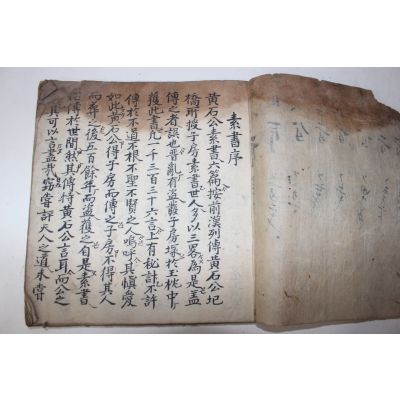 素書序
黃石公素書六篇按前漢列傳黃石公圯
橋所授子房素書世人多以三畧為是盖
傳之者誤也晋亂有盜發子房塚於玉枕中
獲此書凡一千三百三十六言上有秘計不許
傳於不道不根不聖不賢之人嗚呼其慎愛
如此黃石公得子房而傳之子房不得其人
而葬之後五百餘年而盜獲之自是素書
傳於世間然其傳特黃石公言耳而公之
其可以言盡哉窃嘗評天人之道未嘗